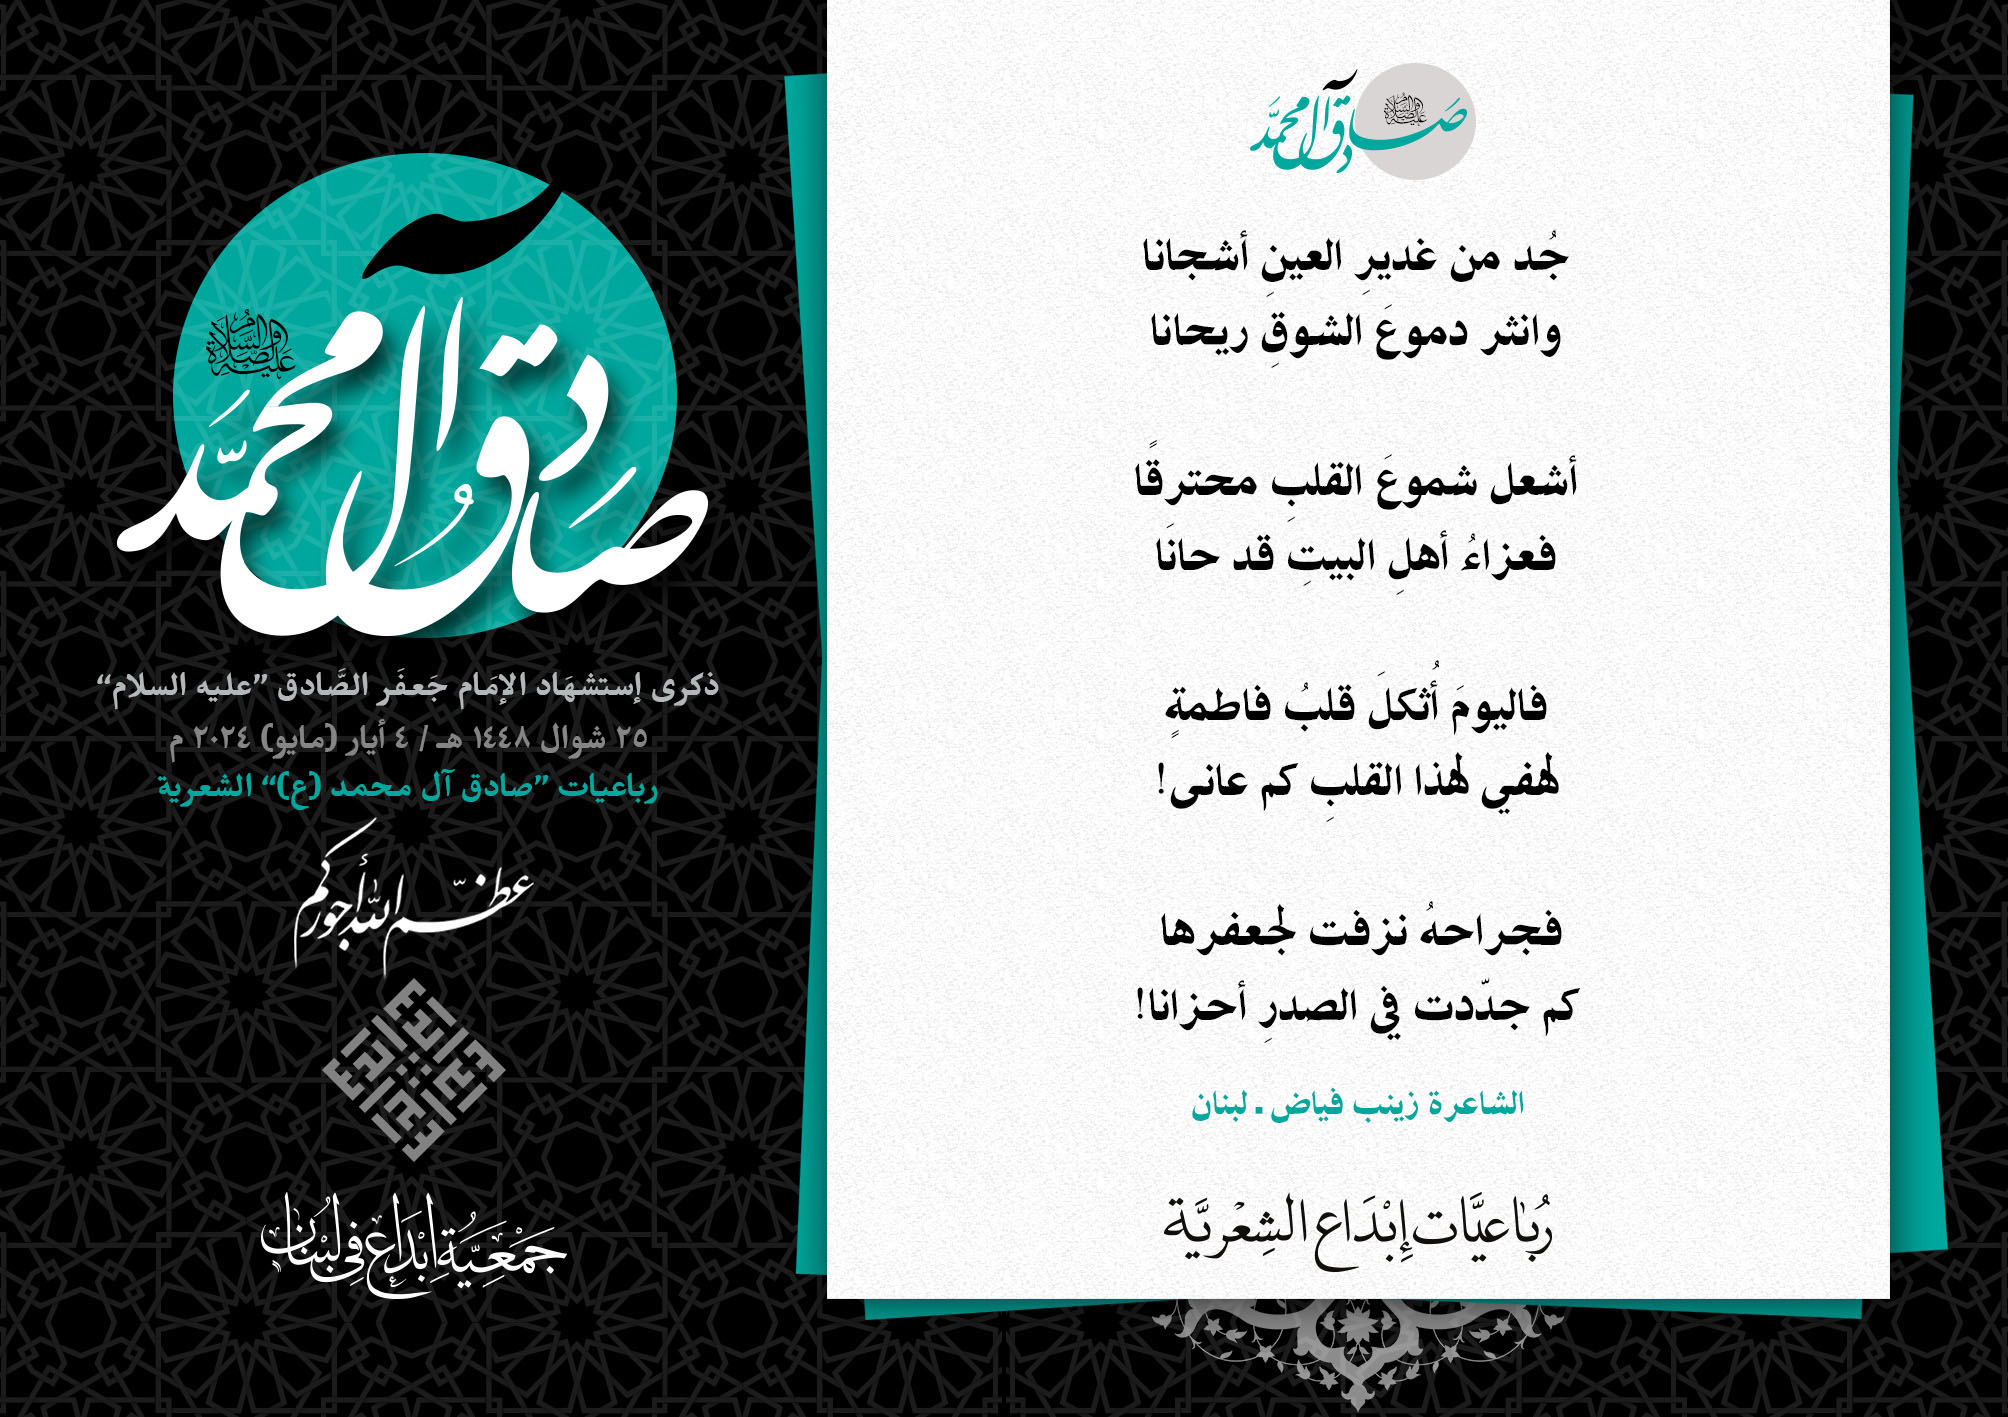 صادق آل محمد
عليه الصلاة والسلام
جُد من غديرِ العينِ أشجانا
وانثر دموعَ الشوقِ ريحانا
أشعل شموعَ القلبِ محترقًا
فعزاءُ أهلِ البيتِ قد حانَا
فاليومَ أُثكلَ قلبُ فاطمةٍ
لهفي لهذا القلبِ كم عانى!
فجراحهُ نزفت لجعفرها
كم جدّدت في الصدرِ أحزانا!
الشاعرة زينب فياض ـ لبنان
رُبَاعيَّات إِبْدَاع الشِعْريَّة
صَادقُ آل محمَّد
عَليْه الصَّلَاةُ والسَّلَامُ
ذكرى إستشهَاد الإمَام جَعفَر الصَّادق ”عليه السلام“
٢٥ شوال ١٤٤٨ هـ / ٤ أيار (مايو) ٢٠٢٤ م
رباعيات ”صادق آل محمد (ع)“ الشعرية
عظّم الله أجوركم
جَمْعِيَّةُ إِبْدَاع فِي لُبْنَان